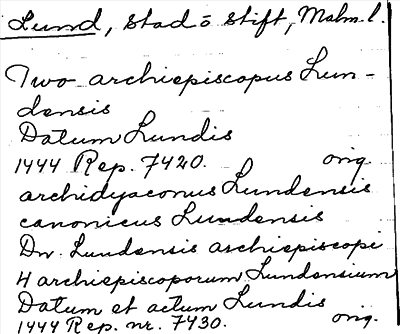 Lund, stad o stift, Malm. l.
Two archiepiscopus Lun-
densis
Datum Lundis
1444 Rep. 7420. orig.
archidyaconus Lundensis
canonicus Lundensis
Dn. Lundensis archiepiscopi
H archiepiscoporum Lundensium
Datum et actum Lundis
1444 Rep. nr. 7430. orig.